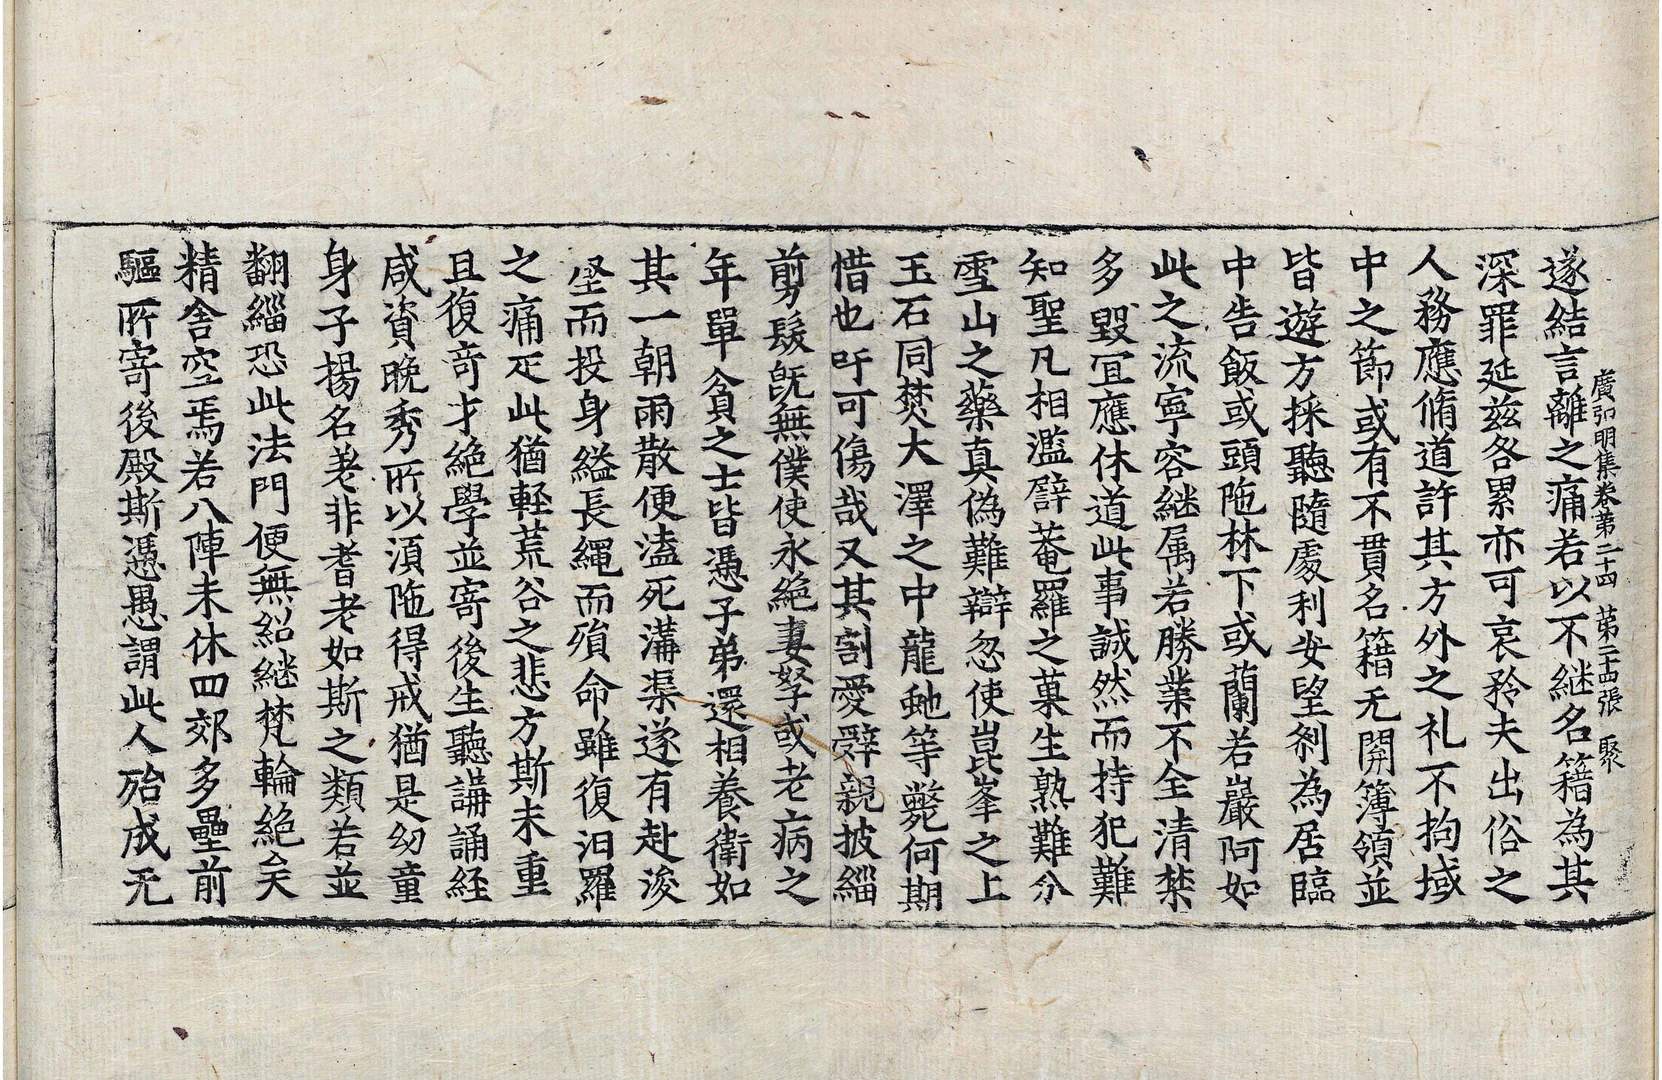 廣弘明集卷第二十四 第二十四張 聚
遂結言離之痛若以不継名籍為其
深罪延兹各累亦可哀矜夫出俗之
人務應脩道許其方外之礼不拘域
中之節或有不貫名籍无開簿領並
皆遊方採聽隨處利安望刹為居臨
中告飯或頭陁林下或蘭若巖阿如
此之流寧容継属若勝業不全清禁
多毀冝應休道此事誠然而持犯難
知聖凡相濫譬菴羅之菓生熟難分
雪山之藥真偽難辯忽使崑峯之上
玉石同焚大澤之中龍虵等斃何期
惜也吁可傷哉又其割愛辝親披緇
剪髮旣無僕使永絶妻孥或老病之
年單貧之士皆憑子弟還相養衛如
其一朝雨散便溘死溝渠遂有赴浚
壑而投身縊長繩而殞命雖復汨羅
之痛疋此猶軽荒谷之悲方斯未重
且復竒才絶學並寄後生聽講誦経
咸資晚秀所以湏陁得戒猶是幼童
身子揚名差非耆老如斯之類若並
翻緇恐此法門便無紹継梵輪絶矣
精舎空焉若八陣未休四郊多壘前
驅所寄後殿斯憑愚謂此人殆成无